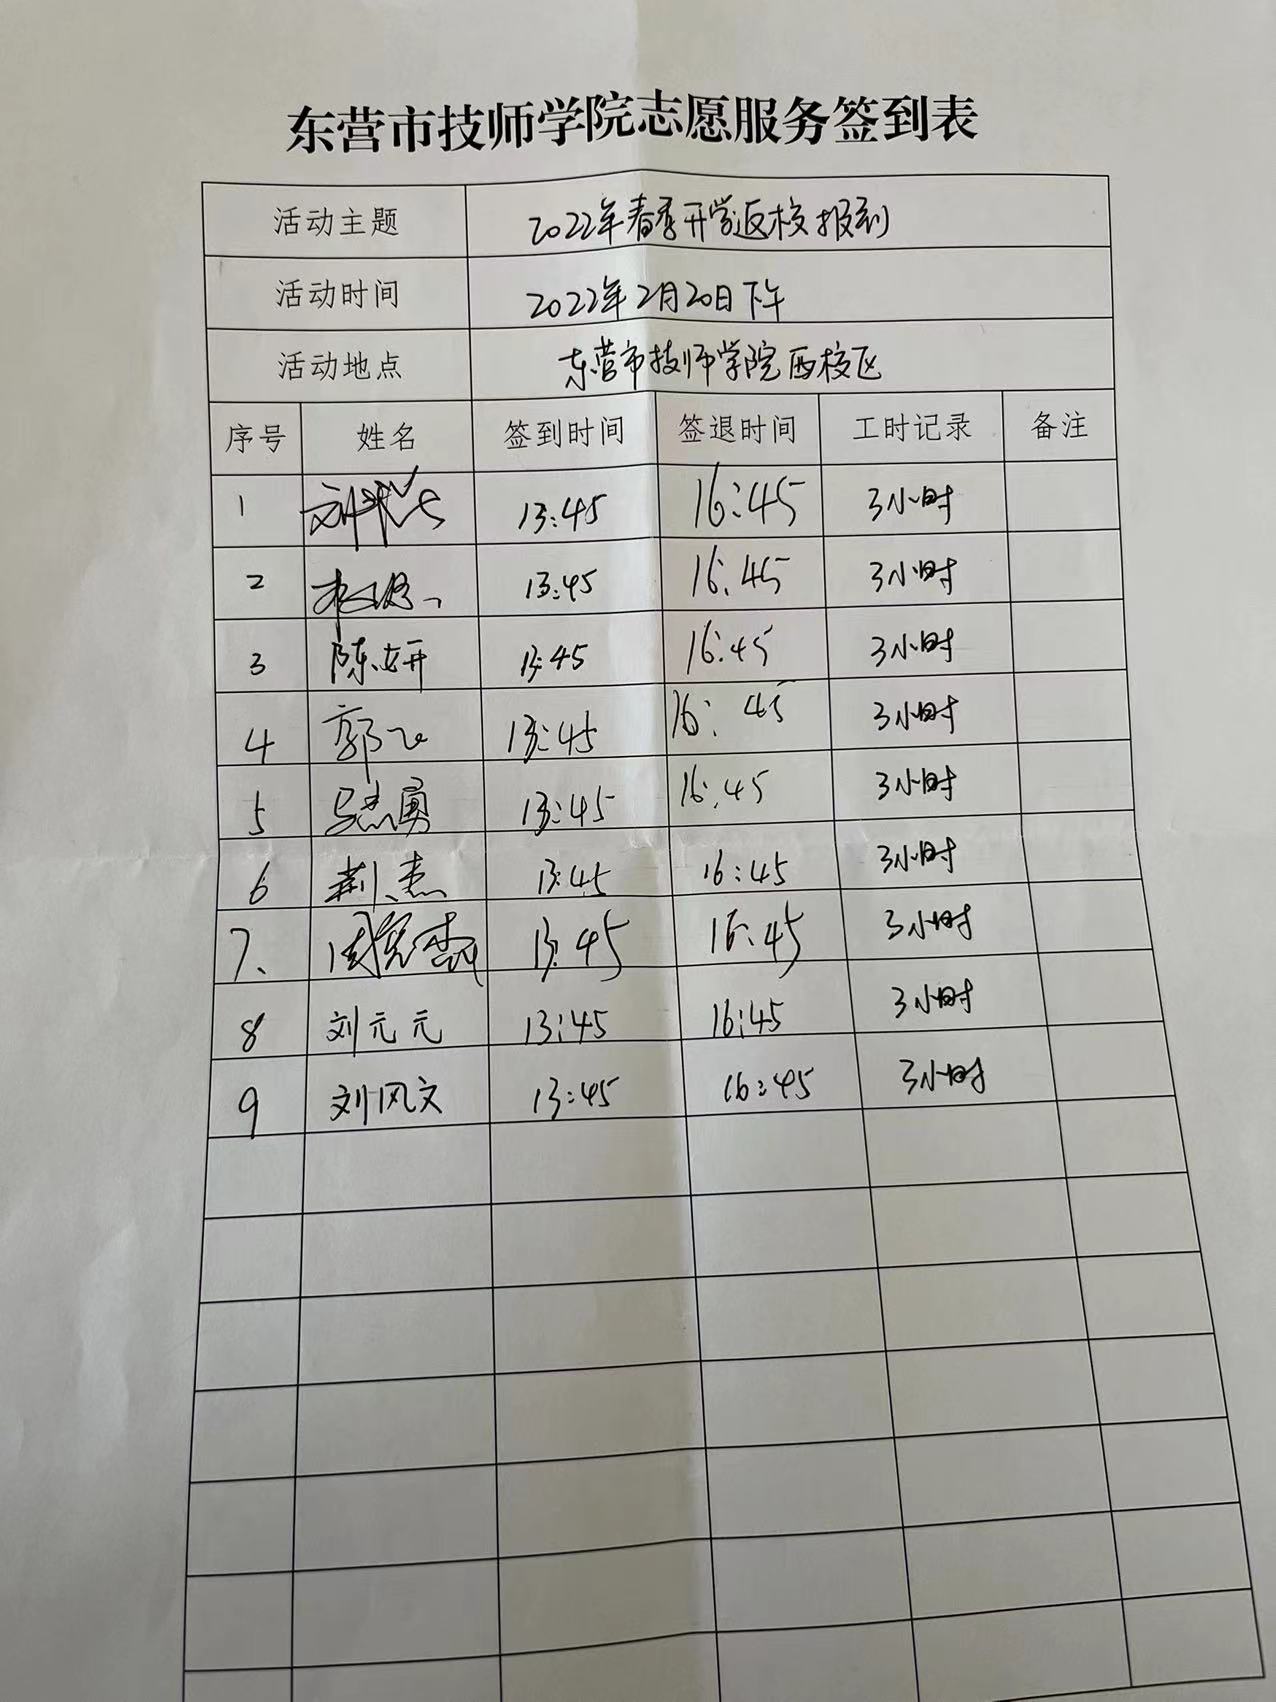 东营市技师学院志愿服务签到表
活动主题 2022年春季开学返校报到
活动时间 2022年2月20日下午
活动地点 东营市技师学院西校区
序号 姓名 签到时间 签退时间 工时记录 备注
1 刘 13:45 16:45 3小时
2 13:45 16:45 3小时
3 陈妍 13:45 16:45 3小时
4 郭飞 13:45 16:45 3小时
5 吴志勇 13:45 16:45 3小时
6 荆杰 13:45 16:45 3小时
7、 周宪杰 13:45 16:45 3小时
8 刘元元 13:45 16:45 3小时
9 刘风文 13:45 16:45 3小时